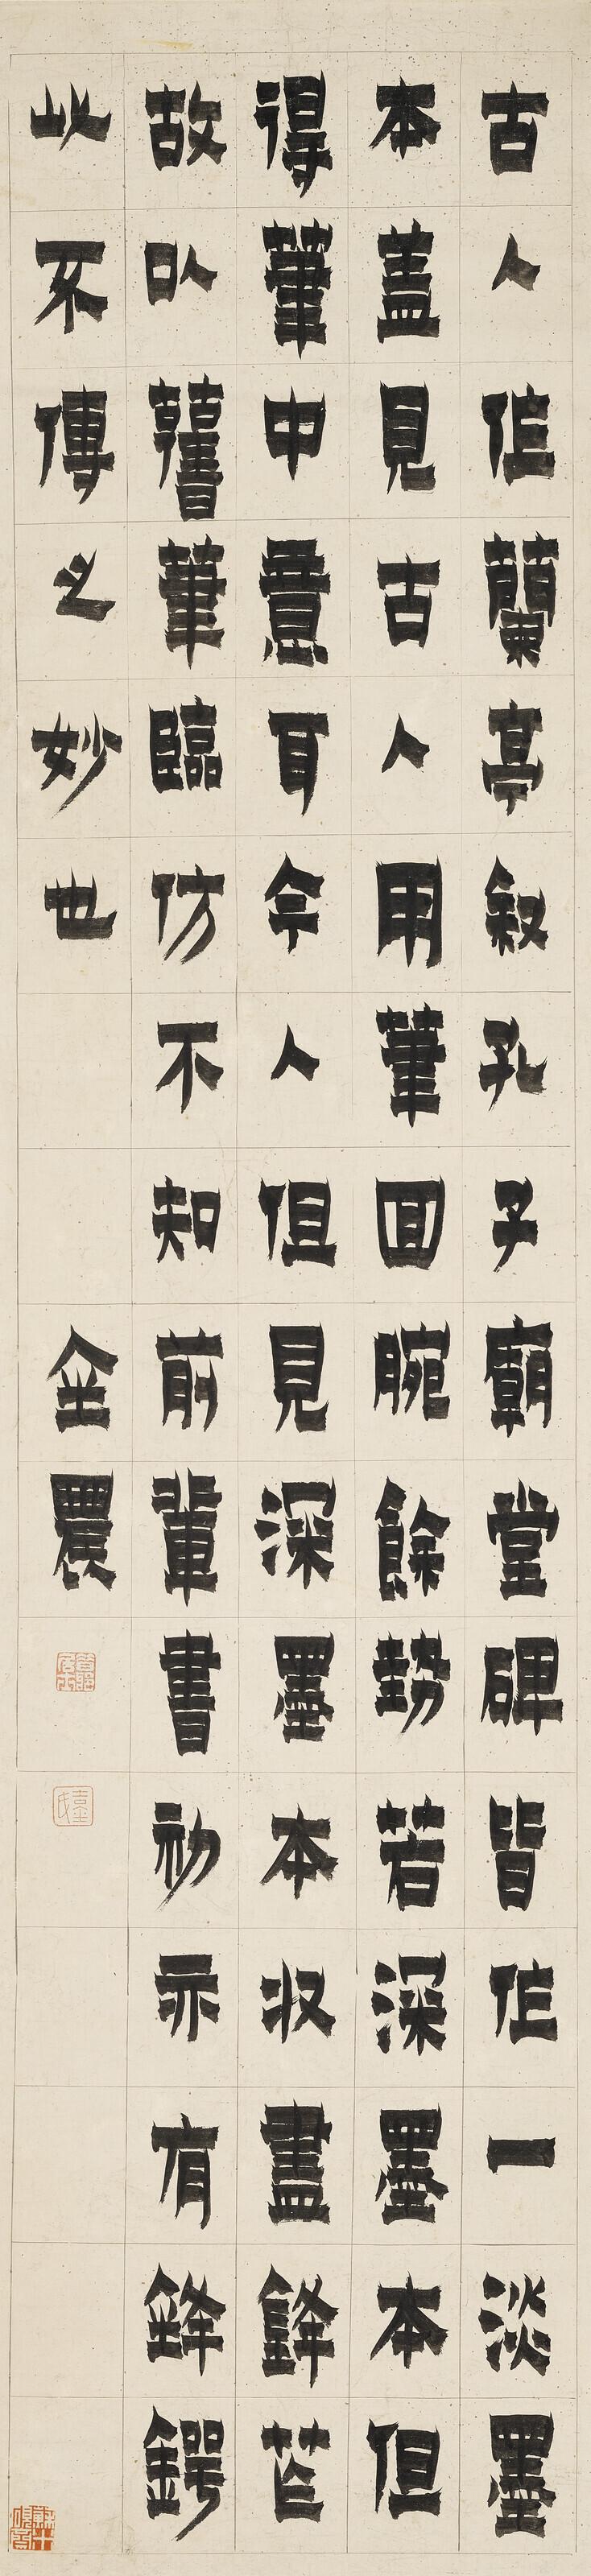 古人作蘭亭敘孔子廟堂碑皆作一淡墨
本蓋見古人用筆回腕餘勢若深墨本但
得筆中意耳今人但見深墨本收盡鋒芒
故以舊筆臨仿不知前輩書初亦有鋒鍔
此不傳之妙也 金農